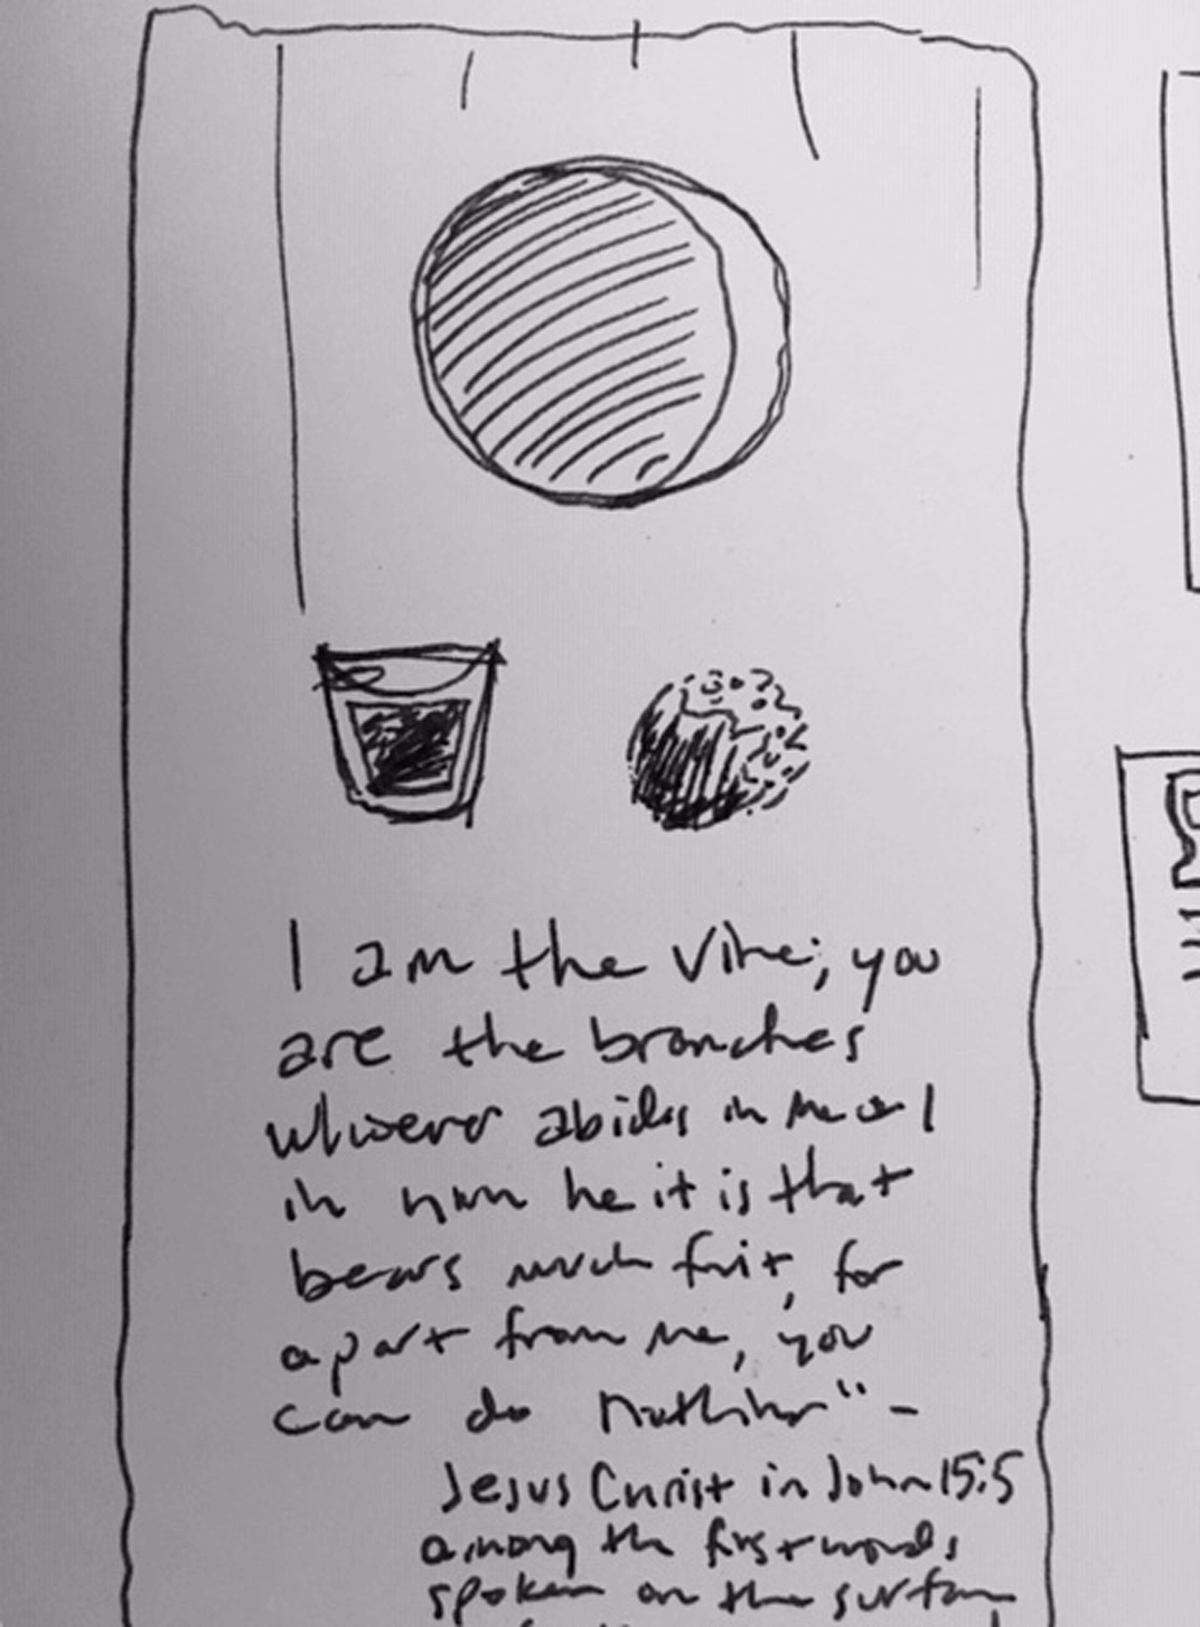 I am the vine; you
are the branches
whoever abides in me & I
in him he it is that
bears much fruit, for
apart from me, you
can do nothing" -
Jesus Christ in John 15:5
among the first words
spoken on the surface